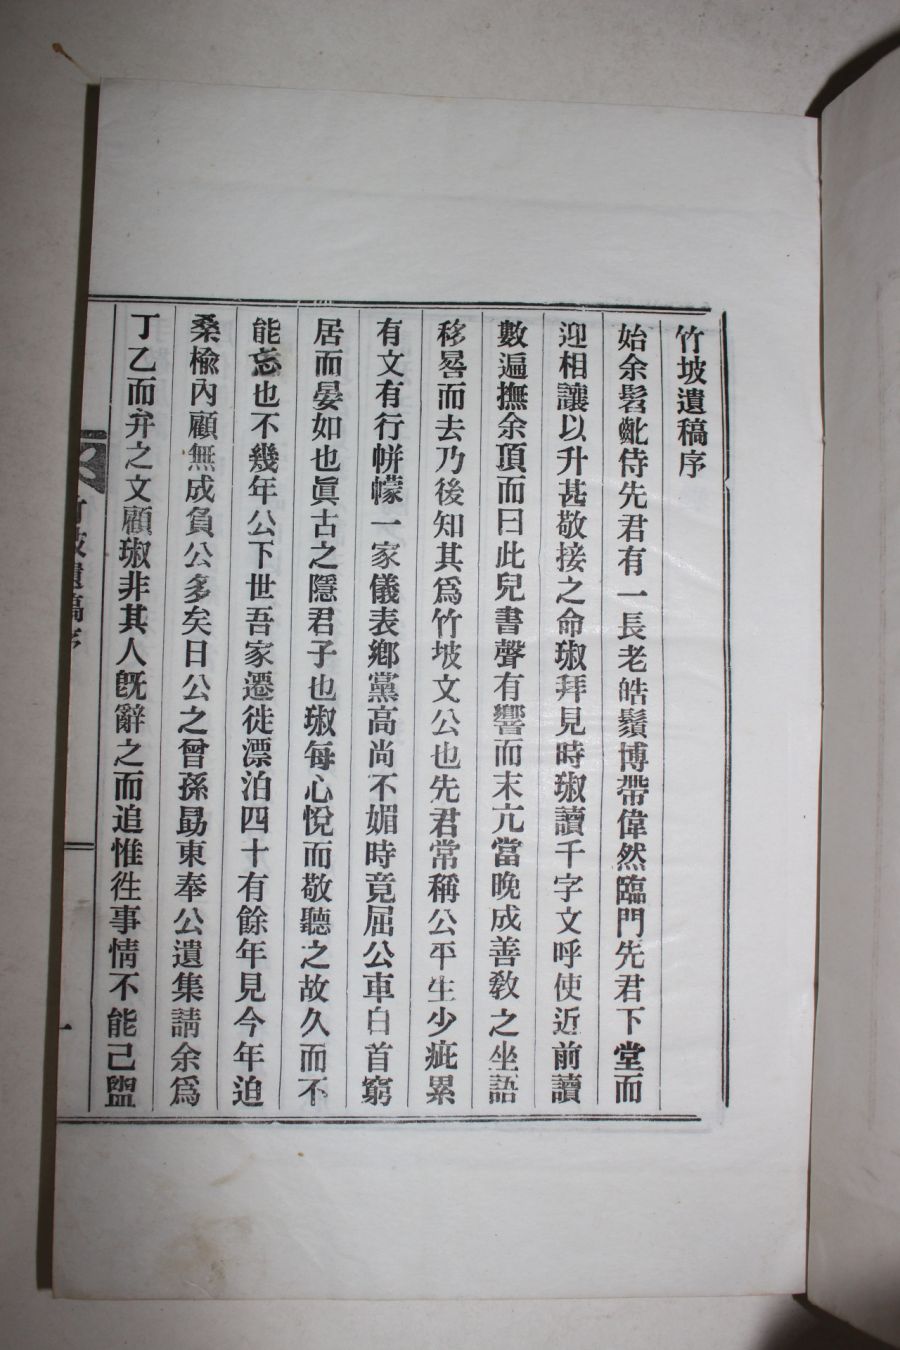 竹坡遺稿序
始余髫齔侍先君有一長老皓鬚博帶偉然臨門先君下堂而
迎相讓以升甚敬接之命琡拜見時琡讀千字文呼使近前讀
數遍撫余頂而曰此兒書聲有響而末亢當晩成善敎之坐語
移晷而去乃後知其爲竹坡文公也先君常稱公平生少疵累
有文有行帡幪一家儀表鄉黨高尚不媚時竟屈公車白首窮
居而晏如也眞古之隱君子也琡每心悅而敬聽之故久而不
能忘也不幾年公下世吾家遷徙漂泊四十有餘年見今年迫
桑楡內顧無成負公多矣日公之曾孫勗東奉公遺集請余爲
丁乙而弁之文顧琡非其人旣辭之而追惟徃事情不能已盥
竹坡遺稿序
一